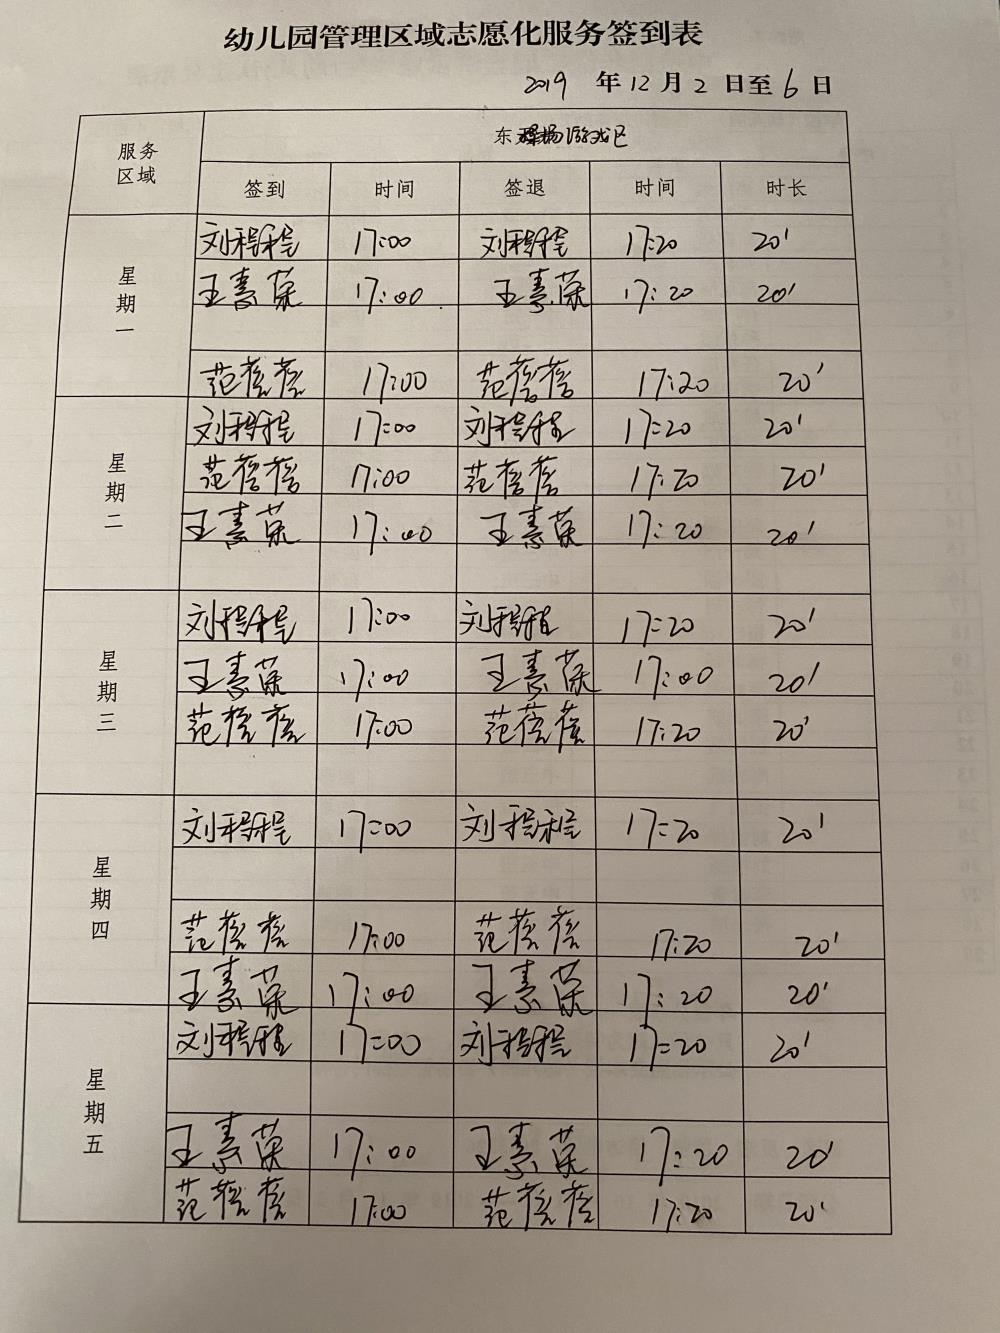 幼儿园管理区域志愿化服务签到表
2019 年 12 月 2 日至 6 日
服务区域 东 游戏区
签到 时间 签退 时间 时长
星期一
刘程程 17:00 刘程程 17:20 20'
王素荣 17:00 王素荣 17:20 20'
范蓓蓓 17:00 范蓓蓓 17:20 20'
星期二
刘程程 17:00 刘程程 17:20 20'
范蓓蓓 17:00 范蓓蓓 17:20 20'
王素荣 17:00 王素荣 17:20 20'
星期三
刘程程 17:00 刘程程 17:20 20'
王素荣 17:00 王素荣 17:00 20'
范蓓蓓 17:00 范蓓蓓 17:20 20'
星期四
刘程程 17:00 刘程程 17:20 20'
范蓓蓓 17:00 范蓓蓓 17:20 20'
王素荣 17:00 王素荣 17:20 20'
星期五
刘程程 17:00 刘程程 17:20 20'
王素荣 17:00 王素荣 17:20 20'
范蓓蓓 17:00 范蓓蓓 17:20 20'